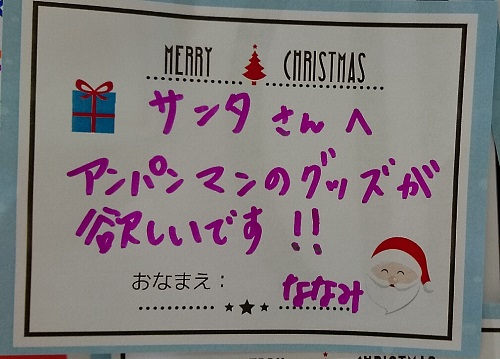 MERRY CHRISTMAS
サンタさんへ
アンパンマンのグッズが
欲しいです!!
おなまえ: ななみ